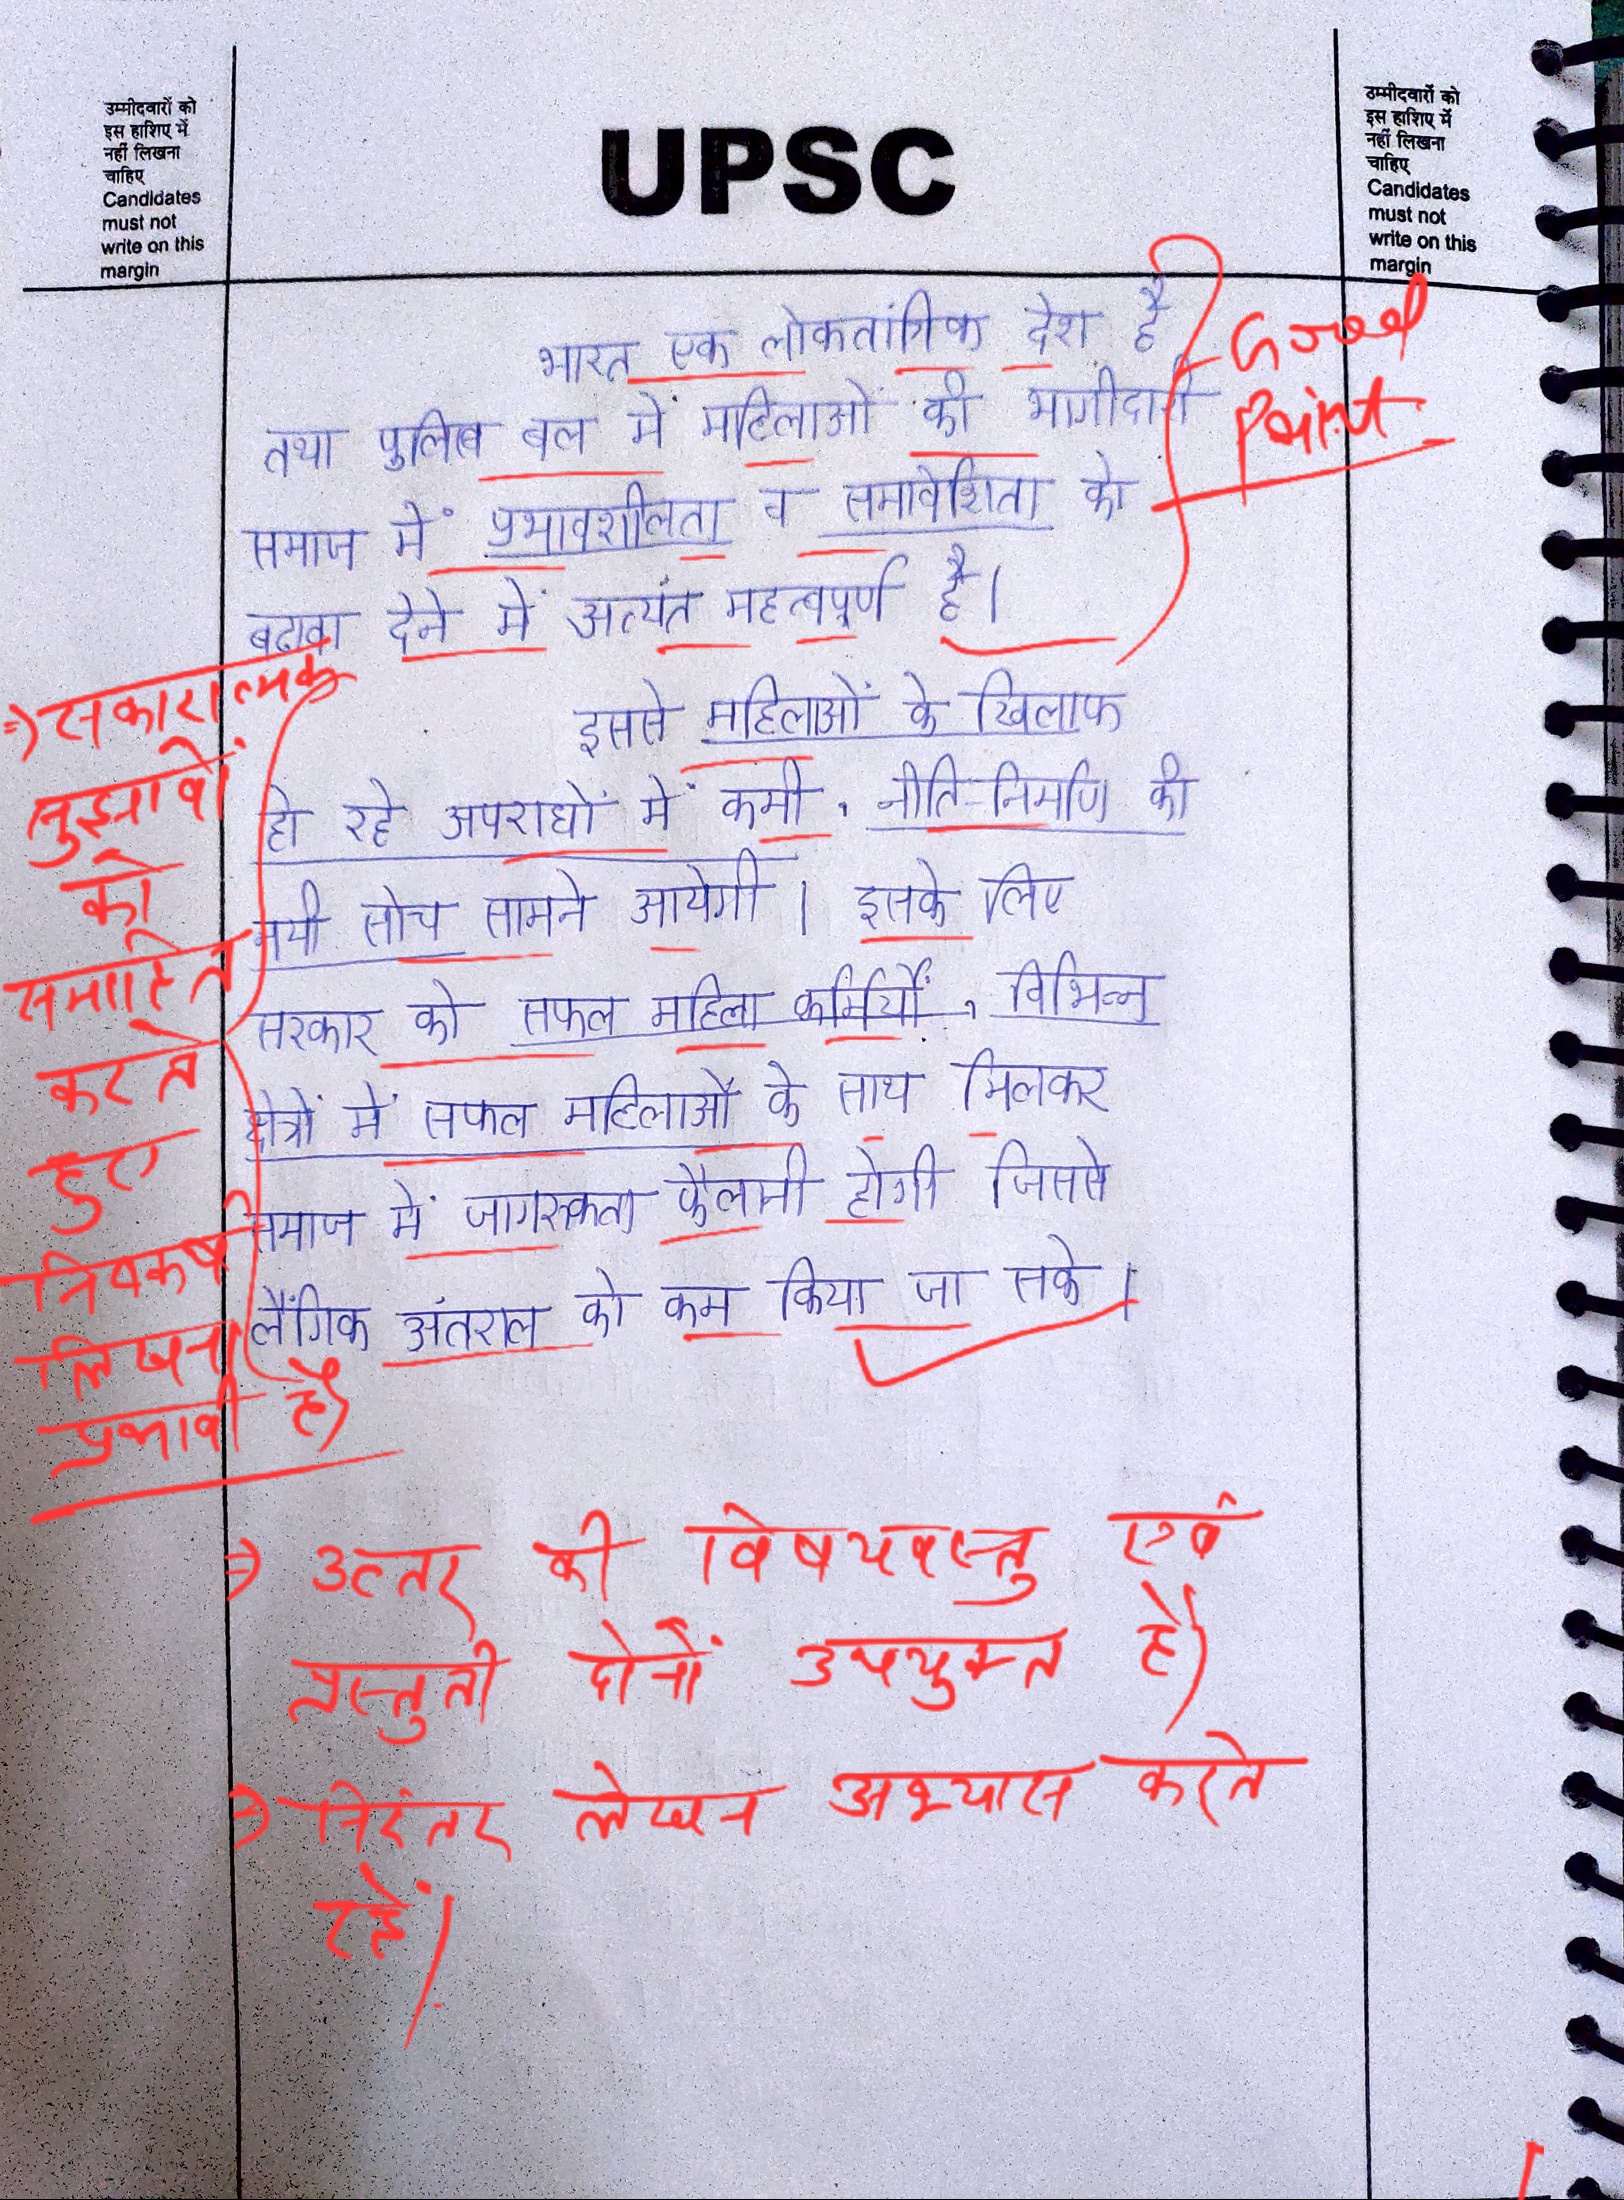 उम्मीदवारों को
इस हाशिए में
नहीं लिखना
चाहिए
Candidates
must not
write on this
margin
UPSC
उम्मीदवारों को
इस हाशिए में
नहीं लिखना
चाहिए
Candidates
must not
write on this
margin
भारत एक लोकतांत्रिक देश है
तथा पुलिस बल में महिलाओं की भागीदारी
समाज में प्रभावशीलता व समावेशिता को
बढावा देने में अत्यंत महत्वपूर्ण है।
Good
Point
इससे महिलाओं के खिलाफ
हो रहे अपराधों में कमी, नीति-निर्माण की
नयी सोच सामने आयेगी। इसके लिए
सरकार को सफल महिला कर्मियों, विभिन्न
क्षेत्रों में सफल महिलाओं के साथ मिलकर
समाज में जागरुकता फैलानी होगी जिससे
लैंगिक अंतराल को कम किया जा सके।
⇒ सकारात्मक
सुझावों
को
समाहित
करते
हुए
निष्कर्ष
लिखना
प्रभावी है।
⇒ उत्तर की विषयवस्तु एवं
प्रस्तुती दोनों उपयुक्त है।
⇒ निरंतर लेखन अभ्यास करते
रहें।